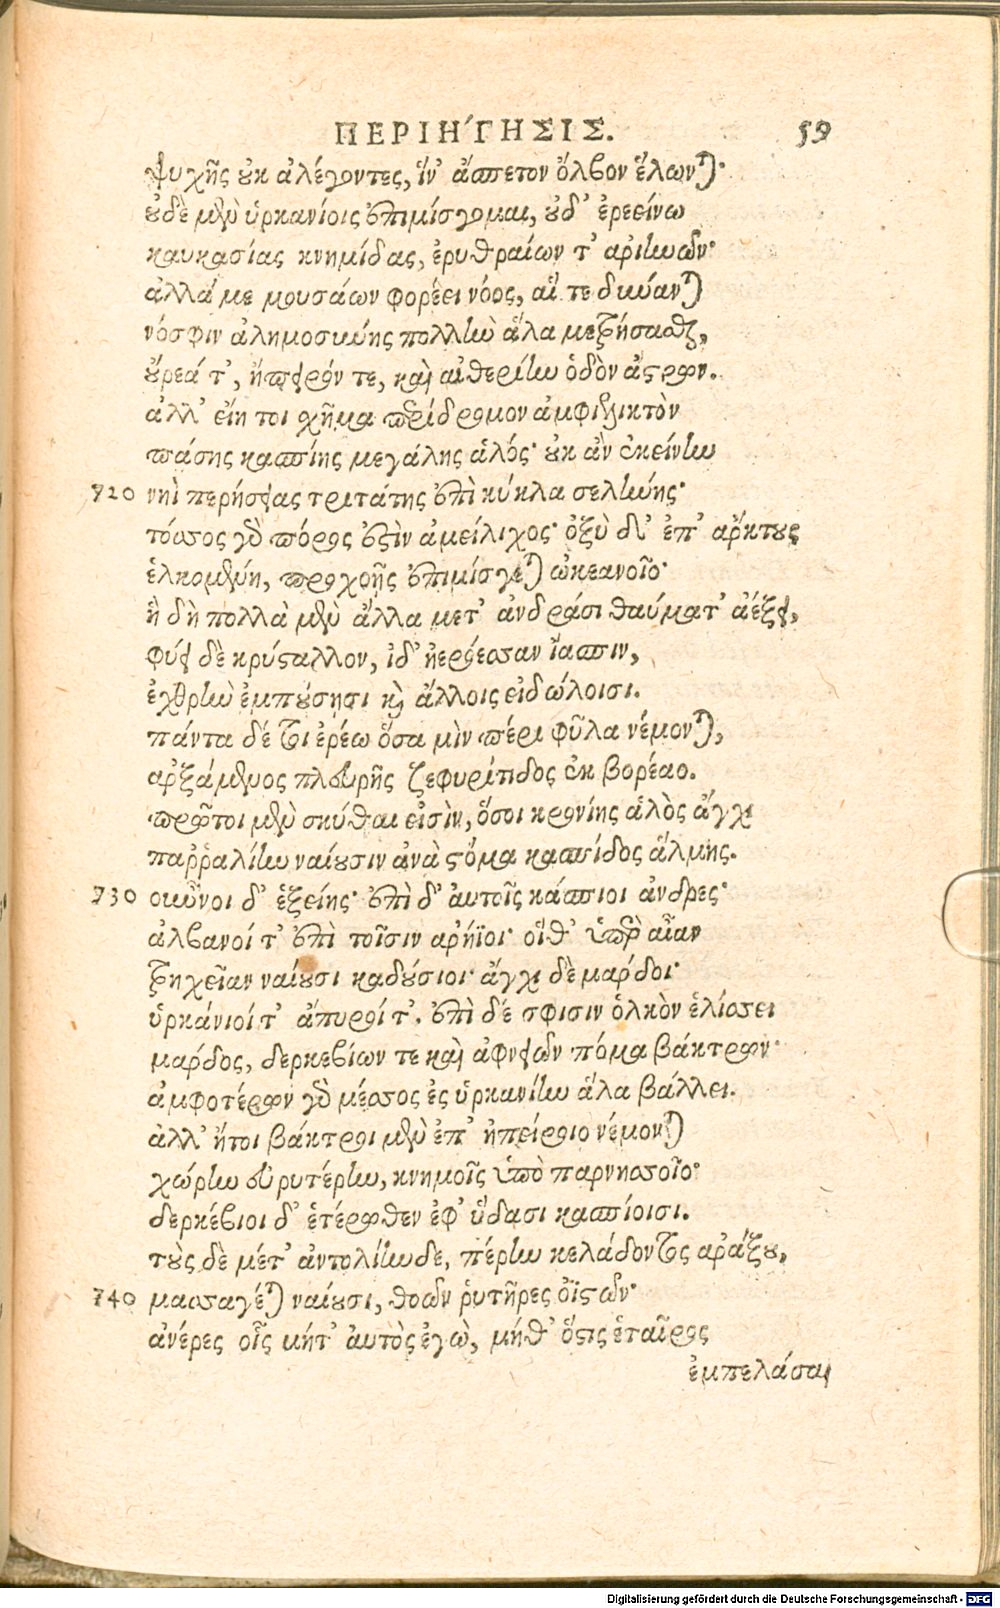 ΠΕΡΙΗΓΗΣΙΣ. 59
ψυχῆς οὐκ ἀλέγοντες, ἵν' ἄσπετον ὄλβον ἕλωνται·
οὐδὲ μὲν ὑρκανίοις ἐπιμίσγομαι, οὐδ' ἐρεείνω
καυκασίας κνημίδας, ἐρυθραίων τ' ἀριηνῶν·
ἀλλά με μουσάων φορέει νόος, αἵ τε δύνανται
νόσφιν ἀλημοσύνης πολλὴν ἅλα μετρήσασθαι,
οὔρεά τ', ἤπειρόν τε, καὶ αἰθερίην ὁδὸν ἄστρων.
ἀλλ' εἴη τοι σχῆμα περίδρομον ἀμφιελικτὸν
πάσης κασπίης μεγάλης ἁλός· οὐκ ἂν ἐκείνην
720 νηῒ περήσειας τριτάτης ἐπὶ κύκλα σελήνης·
τόσσος γὰρ πόρος ἐστὶν ἀμείλιχος· ὀξὺ δ' ἐπ' ἄρκτους
ἑλκομένη, προχοῆς ἐπιμίσγεται ὠκεανοῖο·
ἣ δὴ πολλὰ μὲν ἄλλα μετ' ἀνδράσι θαύματ' ἀέξει,
φύει δὲ κρύσταλλον, ἰδ' ἠερόεσσαν ἴασπιν,
ἐχθρὴν ἐμπούσῃσι καὶ ἄλλοις εἰδώλοισι.
πάντα δέ τοι ἐρέω ὅσα μὶν πέρι φῦλα νέμονται,
ἀρξάμενος πλευρῆς ζεφυρίτιδος ἐκ βορέαο.
πρῶτοι μὲν σκύθαι εἰσὶν, ὅσοι κρονίης ἁλὸς ἄγχι
παῤῥαλίην ναίουσιν ἀνὰ στόμα κασπίδος ἅλμης.
730 οὖννοι δ' ἑξείης· ἐπὶ δ' αὐτοῖς κάσπιοι ἄνδρες·
ἀλβανοί τ' ἐπὶ τοῖσιν ἀρήϊοι· οἵθ' ὑπὲρ αἶαν
τρηχεῖαν ναίουσι καδούσιοι· ἄγχι δὲ μάρδοι·
ὑρκάνιοί τ' ἄπυροί τ'. ἐπὶ δέ σφισιν ὁλκὸν ἑλίσσει
μάρδος, δερκεβίων τε καὶ ἀφνειῶν πόμα βάκτρων·
ἀμφοτέρων γὰρ μέσσος ἐς ὑρκανίην ἅλα βάλλει.
ἀλλ' ἤτοι βάκτροι μὲν ἐπ' ἠπείροιο νέμονται
χώρην εὐρυτέρην, κνημοῖς ὑπὸ παρνησσοῖο·
δερκέβιοι δ' ἑτέρωθεν ἐφ' ὕδασι κασπίοισι.
τοὺς δὲ μέτ' ἀντολίηνδε, πέρην κελάδοντος ἀράξου,
740 μασσαγέται ναίουσι, θοῶν ῥυτῆρες ὀϊστῶν·
ἀνέρες οἷς μήτ' αὐτὸς ἐγὼ, μήθ' ὅστις ἑταῖρος
ἐμπελάσαι
Digitalisierung gefördert durch die Deutsche Forschungsgemeinschaft - DFG